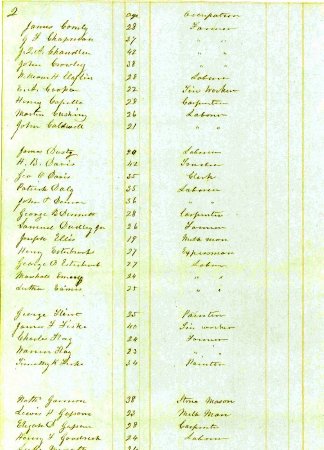 2 age. Occupation
James Comly 28 Farmer
G F Chapman 37 " "
J. Q. A. Chandler 42 " "
John Crowley 38 " "
William H Claflin 28 Labore
Cooper 22 Tin Worker
Henry Capelle 28 Carpenter
Martin Cushing 26 Labour
John Caldwell 21 " "
James Dusty 20 Laborer
H. B. Davis 42
Geo O Davis 35 Clerk
Patrick Daly 35 Laborer
John F 56 "
George B Bennett 28 Carpenter
Samuel Dudley Jr 26 Farmer
Joseph Ellis 19 Milk man
Henry Esterbrook 27 Expressman
George O Esterbrook 27 Labor
Marshall Emery 24 " "
Luther Eames 25 " "
George Flint 25 Painter
James F Fiske 40 Tin worker
Charles Flag 24 Farmer
Warren Flag 23 " "
Timothy K Fiske 34 Painter
Gannon 38 Stone Mason
Lewis H 23 Milk Man
Elijah S 28 Carpenter
Henry F Goodrich 24 Labor